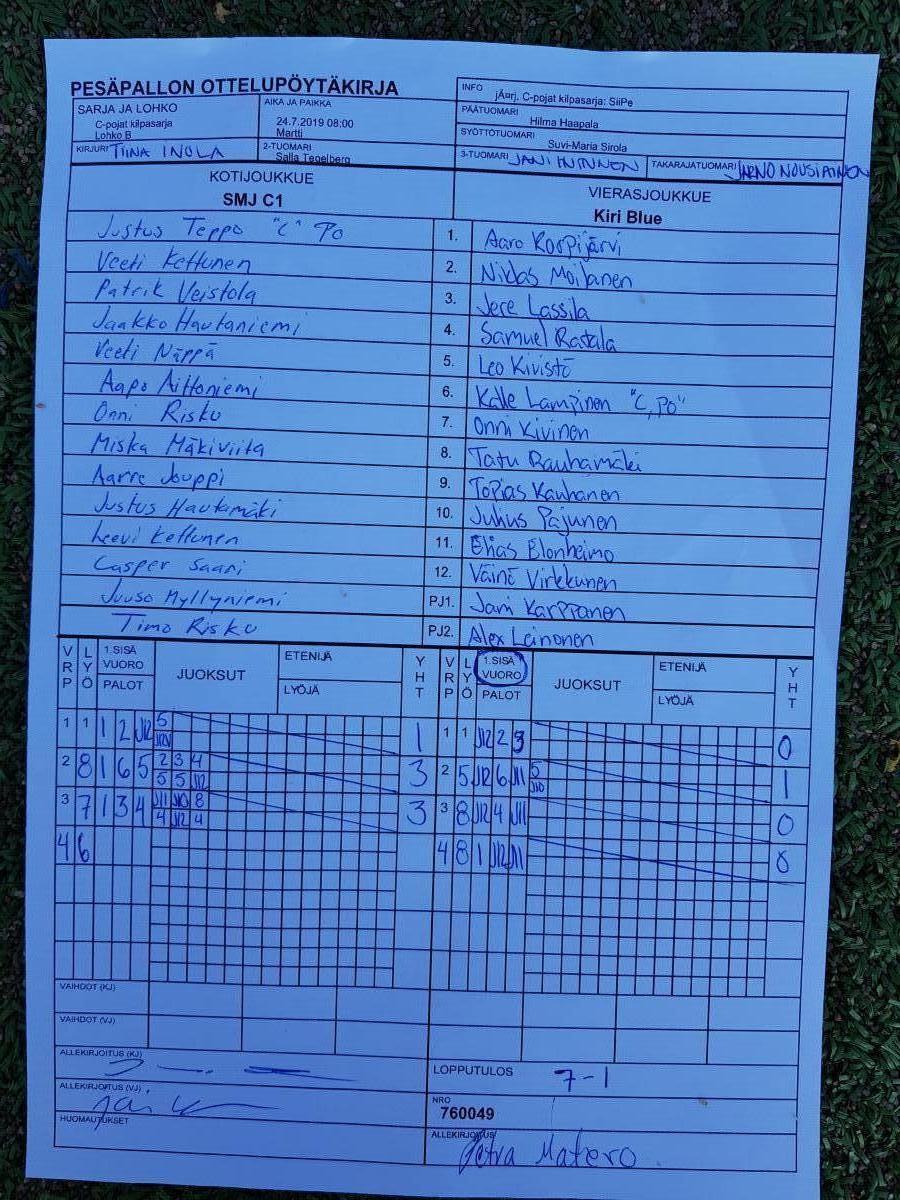 PESÄPALLON OTTELUPÖYTÄKIRJA
INFO jÃ¤rj. C-pojat kilpasarja: SiiPe
SARJA JA LOHKO C-pojat kilpasarja Lohko B
AIKA JA PAIKKA 24.7.2019 08:00 Martti
PÄÄTUOMARI Hilma Haapala
SYÖTTÖTUOMARI Suvi-Maria Sirola
KIRJURI TIINA INOLA
2-TUOMARI Salla Tegelberg
3-TUOMARI JANI
TAKARAJATUOMARI JARNO NOUSIAINEN
KOTIJOUKKUE SMJ C1
VIERASJOUKKUE Kiri Blue
Justus Teppo "C" PO 1. Aaro Korpijärvi
Veeti Kettunen 2. Niklas Moilanen
Patrik Veistola 3. Jere Lassila
Jaakko Hautaniemi 4. Samuel Ratala
Veeti Näppä 5. Leo Kivistö
Aapo Aittoniemi 6. Kalle Lampinen "C, PO"
Onni Risku 7. Onni Kivinen
Miska Mäkiviita 8. Tatu Rauhamäki
Aarre Jouppi 9. Topias Kauhanen
Justus Hautamäki 10. Julius Pajunen
Leevi Kettunen 11. Elias Elonheimo
Casper Saari 12. Väinö Virkkunen
Juuso Myllyniemi PJ1. Jani Karppanen
Timo Risku PJ2. Alex Leinonen
VRP LYÖ 1.SISÄ VUORO PALOT JUOKSUT ETENIJÄ LYÖJÄ YHT VRP LYÖ 1.SISÄ VUORO PALOT JUOKSUT ETENIJÄ LYÖJÄ YHT
1 1 1 2 J12 5 1 1 1 J12 2 3 0
2 8 1 6 5 2 3 4 3 2 5 J12 6 J11 5 1
5 5 J12 J10
3 7 1 3 4 J11 J10 8 3 3 8 J12 4 J11 0
4 J12 4
4 6 4 8 1 J12 J11 0
VAIHDOT (KJ)
VAIHDOT (VJ)
ALLEKIRJOITUS (KJ)
LOPPUTULOS 7-1
ALLEKIRJOITUS (VJ)
NRO 760049
HUOMAUTUKSET
ALLEKIRJOITUS Petra Matero